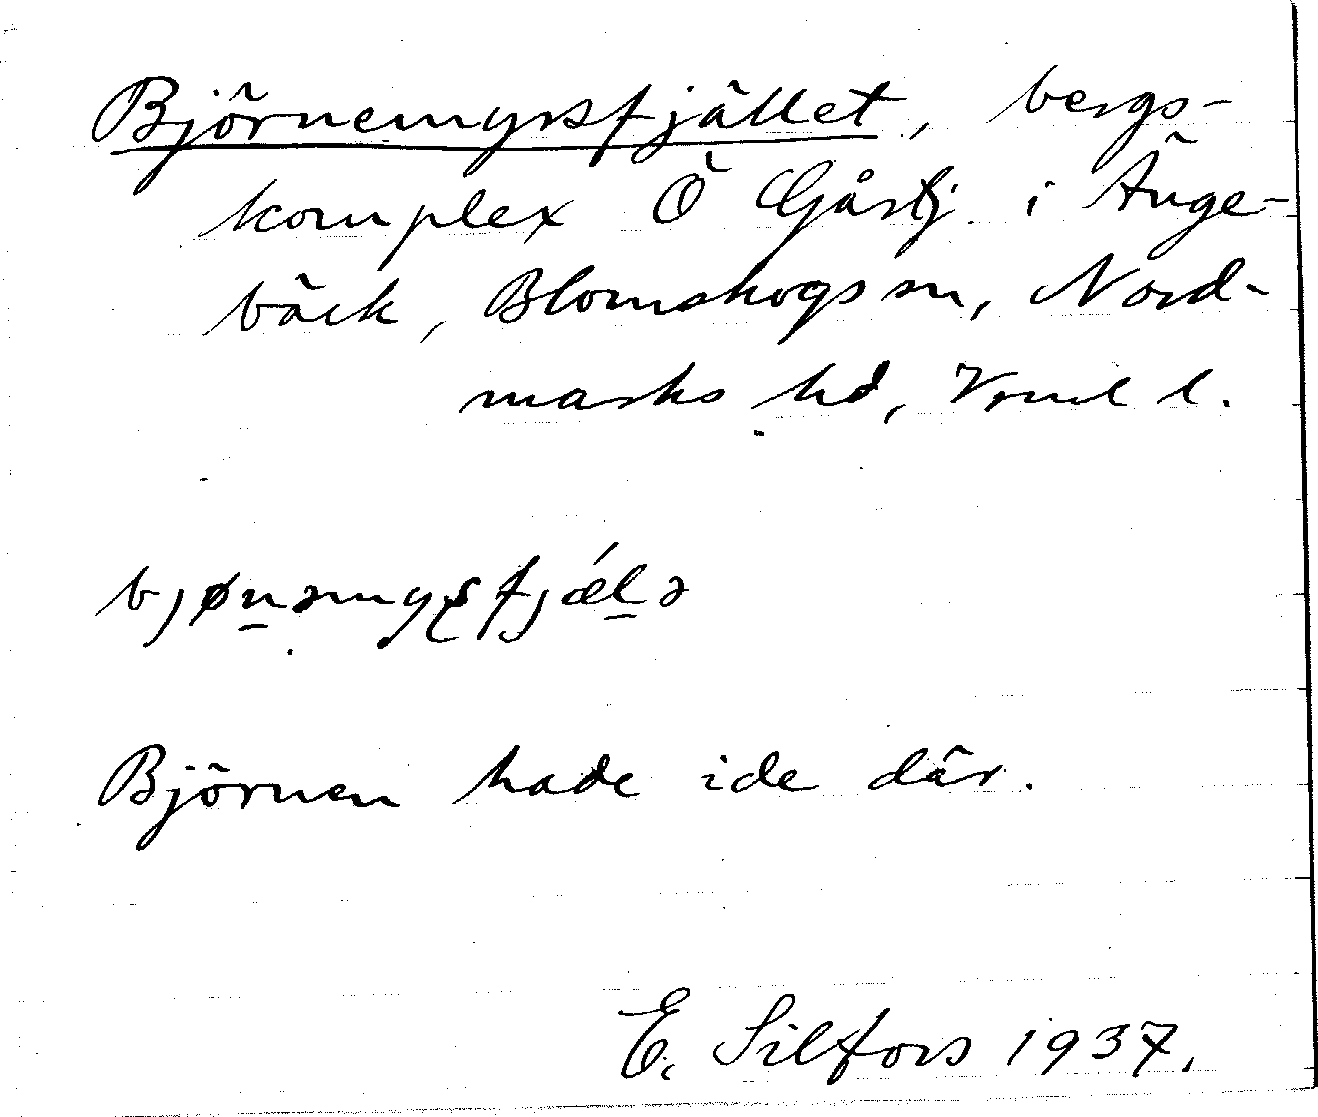 Björnemyrsfjället, bergs-
komplex Ö Gårtj. i Änge-
bäck, Blomskogs sn, Nord-
marks hd, Vrml l.
bjøn̲əmyʂfjǽl̲ə
Björnen hade ide där.
E. Silfors 1937.